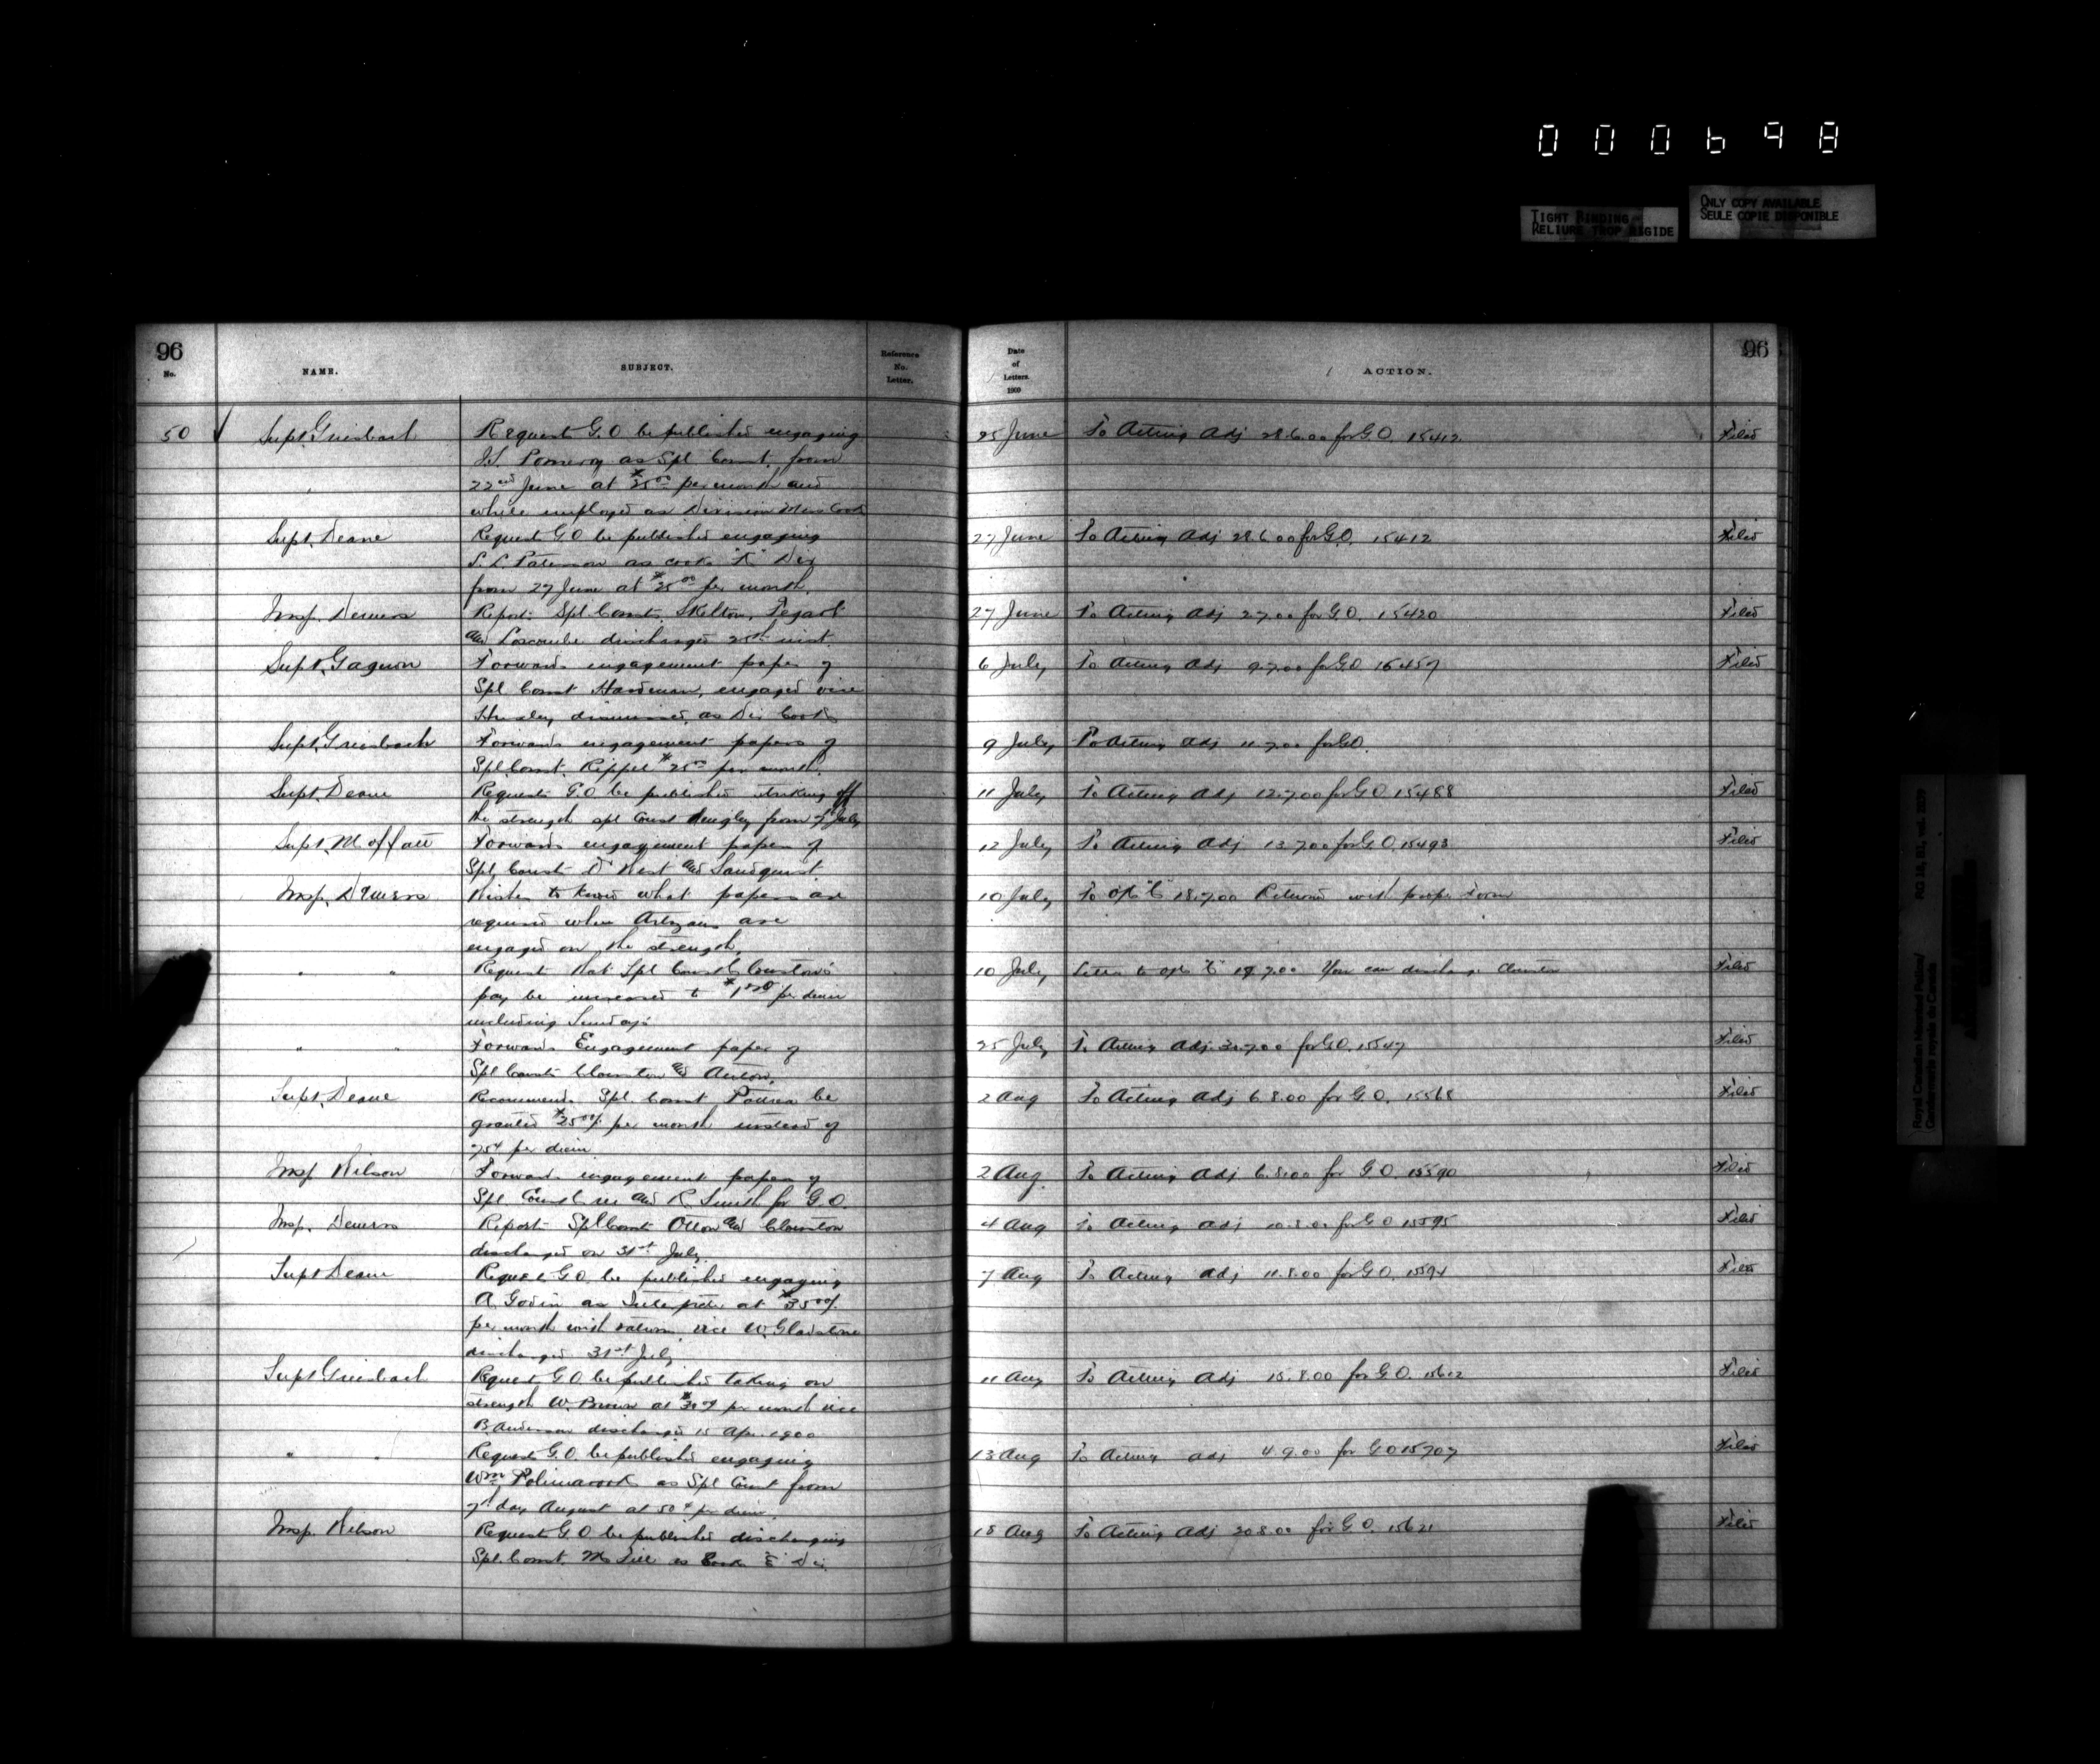 000698
TIGHT BINDING
RELIURE TROP RIGIDE
ONLY COPY AVAILABLE
SEULE COPIE DISPONIBLE
96
No.
NAME.
SUBJECT.
Reference
No.
Letter.
Date
of
Letters.
1900
ACTION.
96
50 Supt. Griesbach Request G.O be published engaging 25 June To Acting Adj 28.6.00 for G.O. 15412 Filed
Pomeroy as Spl Const. from
22nd June at $25.00 per month and
while employed as Division Mess Cook
Supt. Deane Request G.O be published engaging 27 June To Acting Adj 28.6.00 for G.O. 15412 Filed
as cook "K" Div
from 27 June at $25.00 per month.
Insp. Demers Reports Spl Consts. Skelton, 27 June To Acting Adj for G.O. 15420 Filed
and Loscombe discharged 25th inst.
Supt. Gagnon Forwards engagement paper of 6 July To Acting Adj 9.7.00 for G.O Filed
Spl Const Hardman, engaged vice
dismissed, as Div Cook
Supt. Griesbach Forwards engagement papers of 9 July To Acting Adj 11.7.00 for G.O.
Spl. Const. $25.00 per month.
Supt. Deane Requests G.O be published striking off 11 July To Acting Adj 12.7.00 for G.O. 15488 Filed
the strength spl Const from July
Supt. Moffatt Forwards engagement papers of 12 July To Acting Adj 13.7.00 for G.O. 15493 Filed
Spl. Consts West and Sandquist
Insp. Demers Wishes to know what papers are 10 July To 18.7.00 Returned with proper form
required when Artizans are
engaged on the strength,
" " Request that Spl Const Clouston's 10 July Letter to 19.7.00 You can discharge Filed
pay be increased to per diem
including Sundays
" " Forwards Engagement paper of 25 July To Acting Adj. for G.O. 15547 Filed
Spl Consts Clouston and
Supt. Deane Recommends Spl. Const be 2 Aug To Acting Adj 6.8.00 for G.O. Filed
granted $25.00 per month instead of
75¢ per diem.
Insp Wilson Forwards engagement papers of 2 Aug. To Acting Adj 6.8.00 for G.O. 15590 Filed
Spl Const and R Smith for G.O.
Insp. Demers Reports Spl Const and Clouston 4 Aug To Acting Adj 10.8.00 for G.O 15595 Filed
discharged on 31st July
Supt Deane Request G.O. be published engaging 7 Aug To Acting Adj 11.8.00 for G.O. 15594 Filed
A. Godin as Interpreter at $35.00
per month with rations, vice W. Gladstone
discharged 31st July
Supt Griesbach Request G.O be published taking on 11 Aug To Acting Adj 15.8.00 for G.O. 15612 Filed
strength W. Brown at per month vice
B. Anderson discharged 15 Apr. 1900
" " Request G.O. be published engaging 13 Aug To Acting Adj 4.9.00 for G.O 15707 Filed
Wm as Spl Const from
7th day August at 50¢ per diem.
Insp. Wilson Request G.O be published discharging 18 Aug To Acting Adj 20.8.00 for G.O. 15621 Filed
Spl. Const. as Cook "E" Div.
Royal Canadian Mounted Police/
Gendarmerie royale du Canada
RG 18, B1, vol. 2379